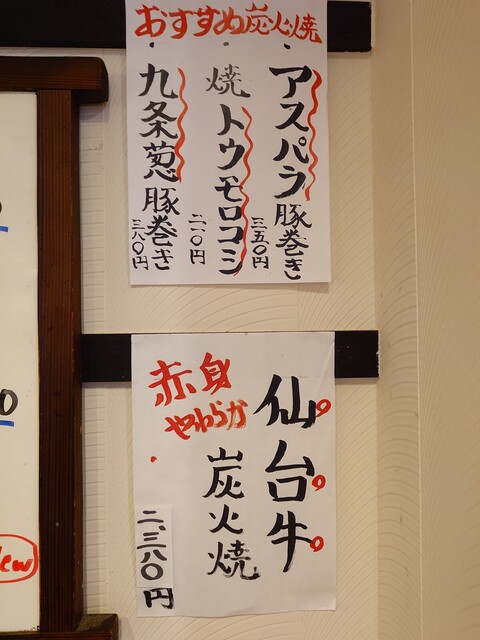 おすすめ炭火焼
アスパラ豚巻き
三五〇円
焼トウモロコシ
二一〇円
九条葱豚巻き
三八〇円
仙台牛
赤身
やわらか
炭火焼
二、三八〇円
0
ew